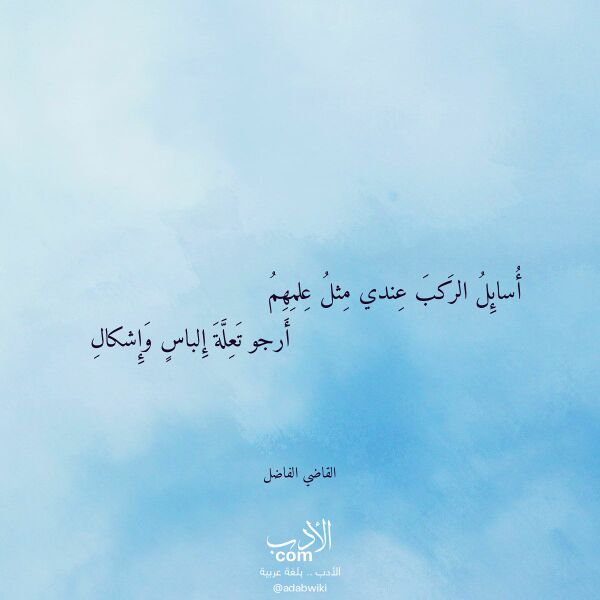 أُسائِلُ الرَكبَ عِندي مِثلُ عِلمِهِمُ
أَرجو تَعِلَّةَ إِلباسٍ وَإِشكالِ
القاضي الفاضل
الأدب
com
الأدب .. بلغة عربية
@adabwiki